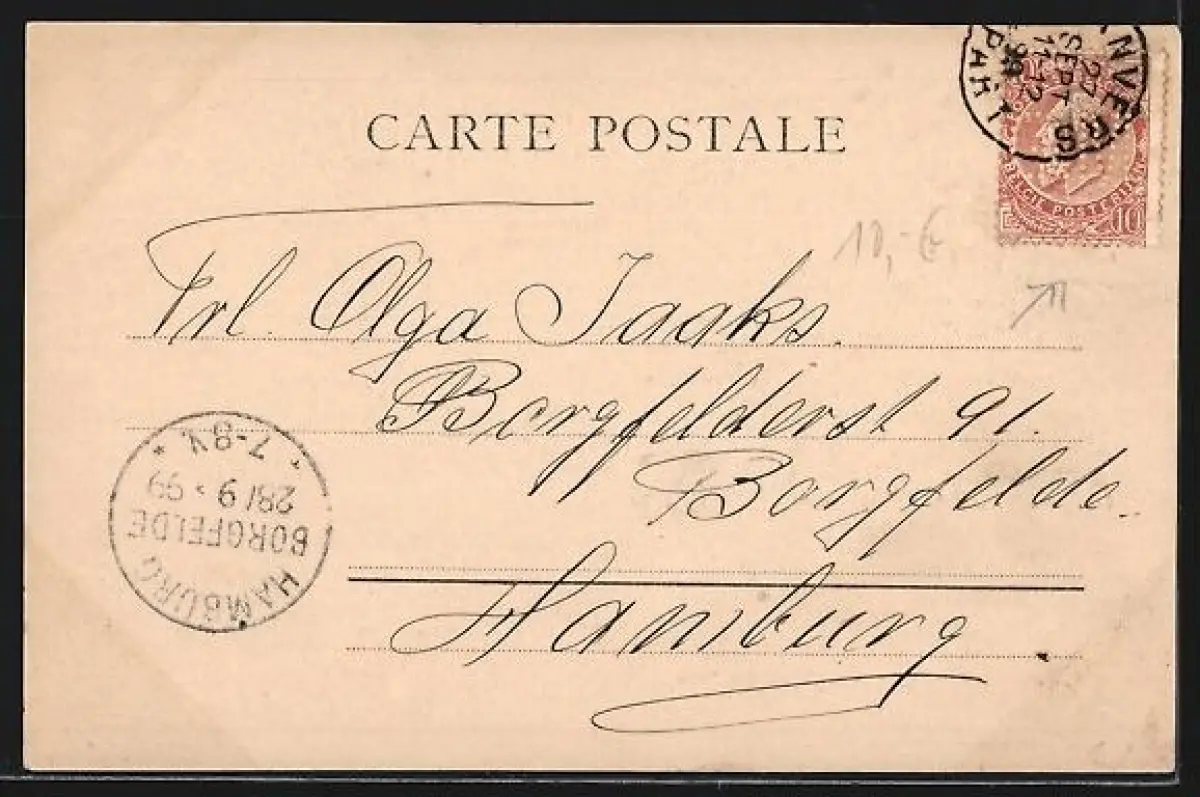 CARTE POSTALE
ANVERS
27
SEPT
11-12
99
DÉPART
BELGIE POSTERIJEN
10
10,- €
Frl. Olga Jaaks.
Borgfelderst 91.
Borgfelde.
Hamburg
HAMBURG
BORGFELDE
28/9 99
7-8V.